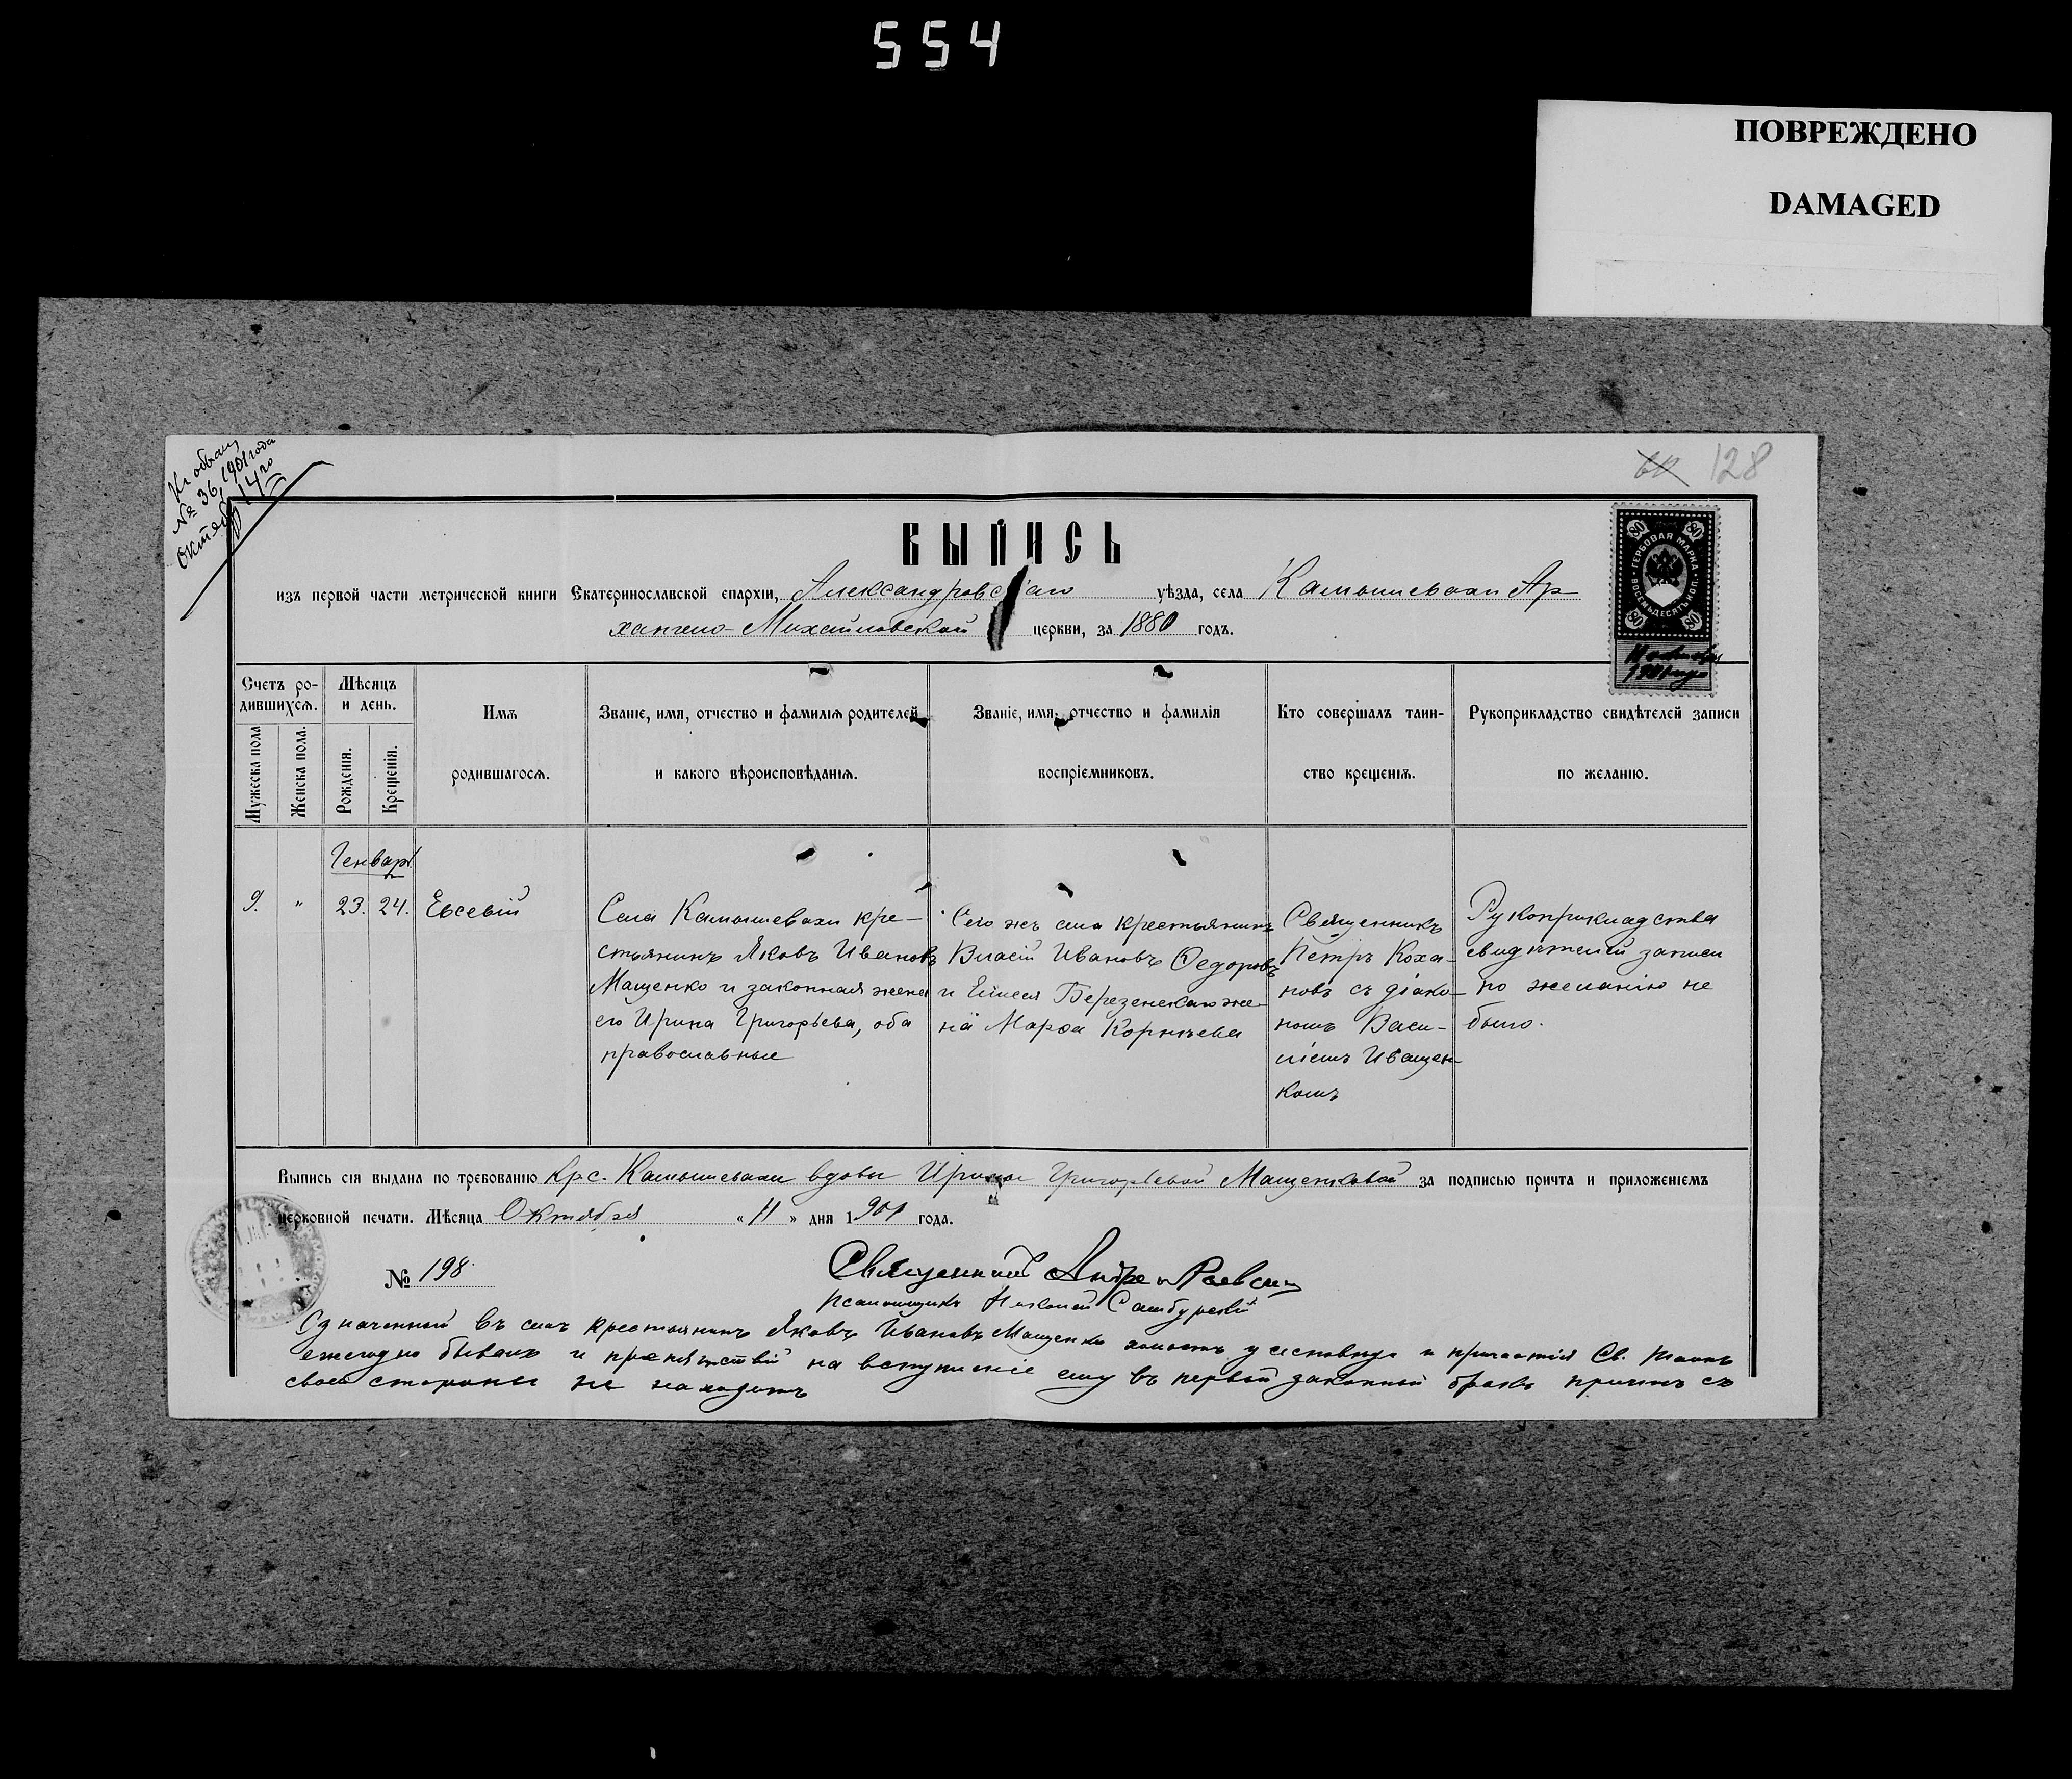 554
ПОВРЕЖДЕНО
DAMAGED
Къ обыску
№ 36, 1901 года
Октября 14го
128
ВЫПИСЬ
изъ первой части метрической книги Екатеринославской епархіи, Александровскаго уѣзда, села Камышевахи Ар-
хангело-Михайловской церкви, за 1880 годъ.
ГЕРБОВАЯ МАРКА
ВОСЕМЬДЕСЯТЪ КОП.
80 80
80 80
11 октября
1901 года
Счетъ ро-
дившихся.
Мужеска пола
Женска пола.
Мѣсяцъ
и день.
Рожденія.
Крещенія.
Имя
родившагося.
Званіе, имя, отчество и фамилія родителей
и какого вѣроисповѣданія.
Званіе, имя, отчество и фамилія
воспріемниковъ.
Кто совершалъ таин-
ство крещенія.
Рукоприкладство свидѣтелей записи
по желанію.
Генварь
9. " 23. 24. Евсевій
Села Камышевахи кре-
стьянинъ Яковъ Ивановъ
Мащенко и законная жена
его Ирина Григорьева, оба
православные
Того жъ села крестьянинъ
Власій Ивановъ Ѳедоровъ
и Елисея Березенскаго же-
на Марѳа Корнѣева
Священникъ
Петръ Коха-
новъ съ діако-
номъ Васи-
ліемъ Иващен-
комъ
Рукоприкладства
свидѣтелей записи
по желанію не
было.
Выпись сія выдана по требованію кр. с. Камышевахи вдовы Ирины Григорьевой Мащенковой за подписью причта и приложеніемъ
церковной печати. Мѣсяца Октября « 11 » дня 1901 года.
№ 198
Священникъ Андрей Раевскій
Псаломщикъ Николай Самбурскій
Означенный въ семъ крестьянинъ Яковъ Ивановъ Мащенко холостъ у исповѣди и причастія Св. Таинъ
ежегодно бывалъ и препятствій на вступленіе ему въ первый законный бракъ причтъ съ
своей стороны не находитъ